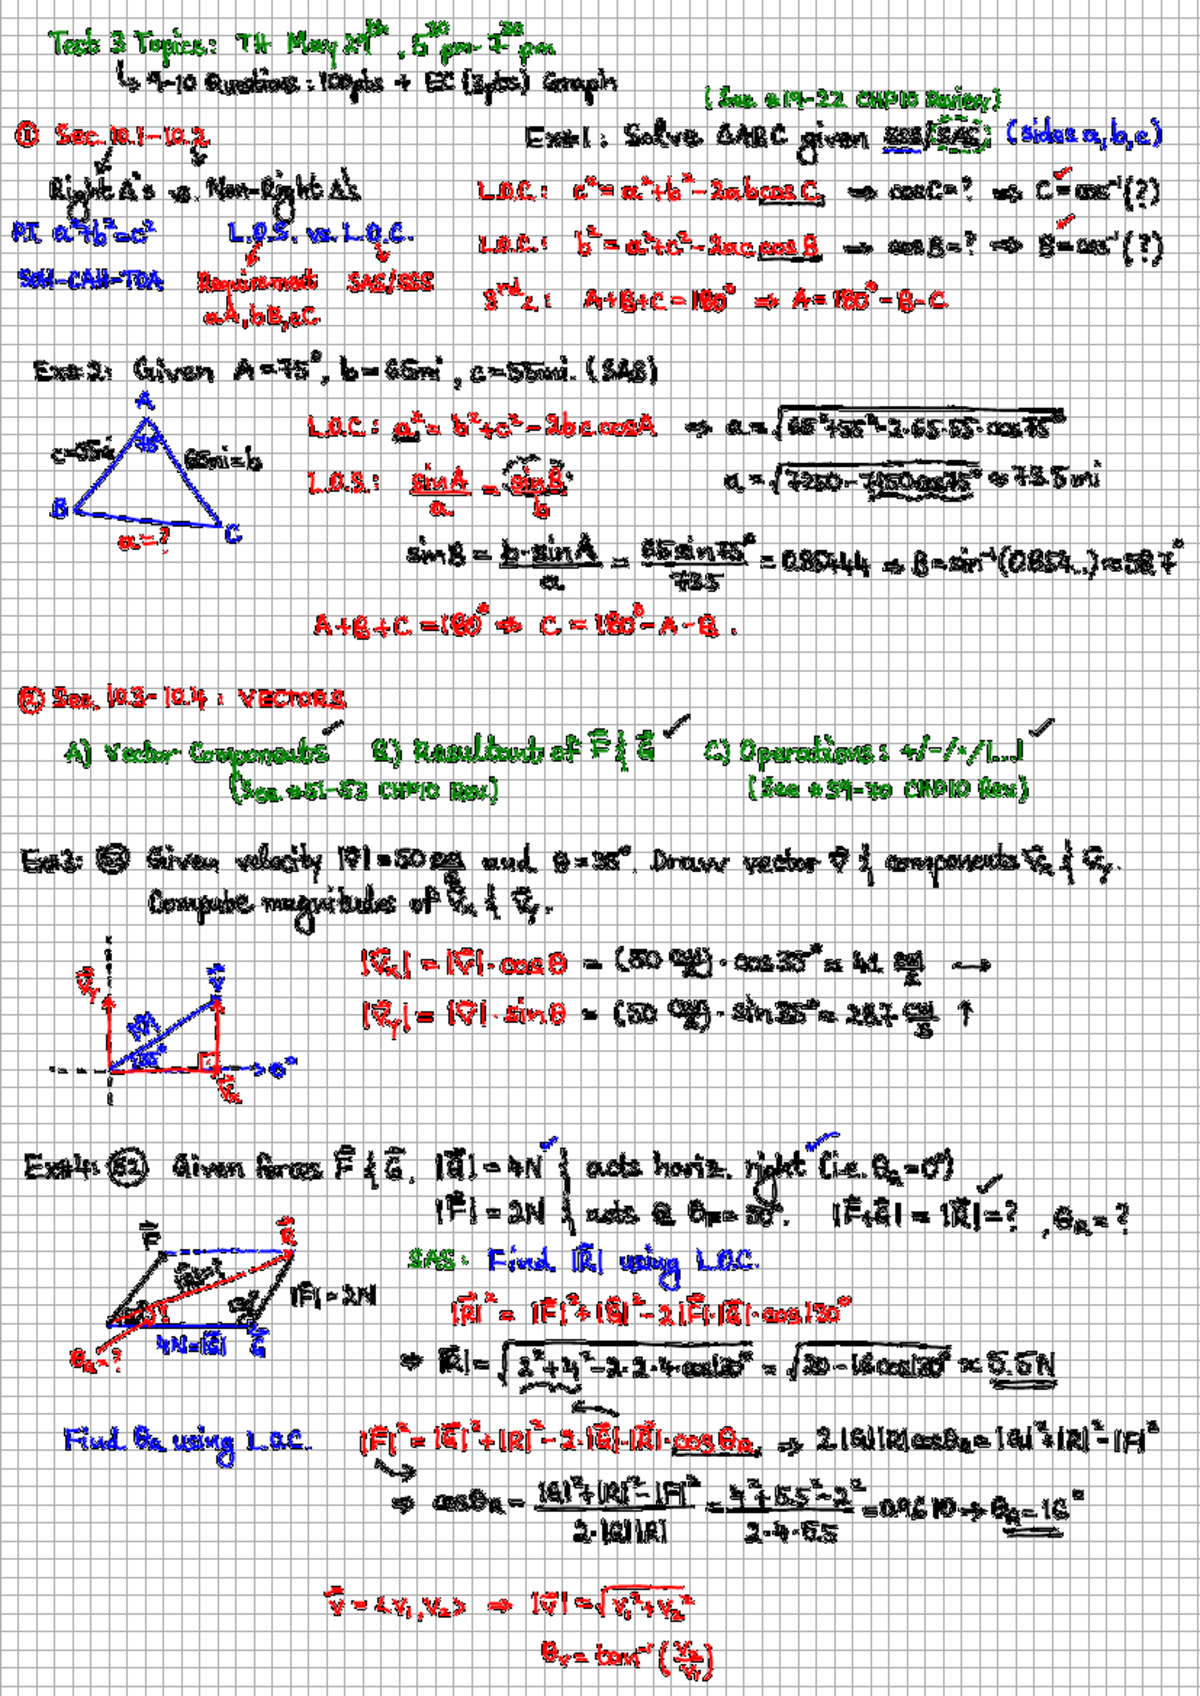 Test 3 Topics: TH May 29th, 5³⁰ pm - 7³⁰ pm
↳ 9-10 Questions: 100pts + EC (3pts) Graph
(See #19-22 CHP10 Review)
① Sec. 10.1-10.2
Right Δ's vs. Non-Right Δ's
P.T. a²+b²=c² L.O.S. vs. L.O.C.
SOH-CAH-TOA Requirement SAS/SSS
aA, bB, cC
Ex#1: Solve ΔABC given SSS/SAS (sides a, b, c)
L.O.C.: c² = a²+b²-2ab cos C ⇒ cosC=? ⇒ C=cos⁻¹(?)
L.O.C.: b² = a²+c²-2ac cos B ⇒ cosB=? ⇒ B=cos⁻¹(?)
3rd ∠: A+B+C=180° ⇒ A=180°-B-C
Ex#2: Given A=75°, b=65mi, c=55mi. (SAS)
A
75°
c=55mi 65mi=b
B
C
a=?
L.O.C.: a² = b²+c²-2bc cosA ⇒ a=√65²+55²-2·65·55·cos75°
a=√7250-7150cos75° ≈ 73.5mi
L.O.S.: sinA/a = sinB/b
sinB = b·sinA/a = 65sin75°/73.5 = 0.85444 ⇒ B=sin⁻¹(0.854..)≈58.7°
A+B+C=180° ⇒ C=180°-A-B.
② Sec. 10.3-10.4: VECTORS
A) Vector Components ✓ B) Resultant of F⃗ & G⃗ ✓ C) Operations: +/-/·/|...| ✓
(See #51-53 CHP10 Rev) (See #59-70 CHP10 Rev)
Ex#3: Given velocity |v⃗|=50 cm/s and θ=35°. Draw vector v⃗ & components v⃗x & v⃗y.
Compute magnitudes of v⃗x & v⃗y.
v⃗y
v⃗
35°
0°
v⃗x
|v⃗x| = |v⃗|·cosθ = (50 cm/s)·cos35° = 41 cm/s →
|v⃗y| = |v⃗|·sinθ = (50 cm/s)·sin35° = 28.7 cm/s ↑
Ex#4: 52 Given forces F⃗ & G⃗. |G⃗|=4N & acts horiz. right (i.e. θG=0°)
|F⃗|=2N & acts @ θF=50°. |F⃗+G⃗|=|R⃗|=?, θR=?
F⃗
R⃗
|R⃗|=?
|F⃗|=2N
4N=|G⃗| G⃗
θR=?
SAS: Find |R⃗| using L.O.C.
|R⃗|² = |F⃗|²+|G⃗|²-2|F⃗|·|G⃗|·cos130°
⇒ |R⃗|=√2²+4²-2·2·4·cos130° = √20-16cos130° ≈ 5.5N
Find θR using L.O.C. |F⃗|²=|G⃗|²+|R⃗|²-2·|G⃗|·|R⃗|·cosθR ⇒ 2|G||R|cosθR=|G|²+|R|²-|F|²
⇒ cosθR = |G|²+|R|²-|F|²/2·|G||R| = 4²+5.5²-2²/2·4·5.5 = 0.9610 → θR=16°
v⃗=<v₁,v₂> ⇒ |v⃗|=√v₁²+v₂²
θv=tan⁻¹(v₂/v₁)